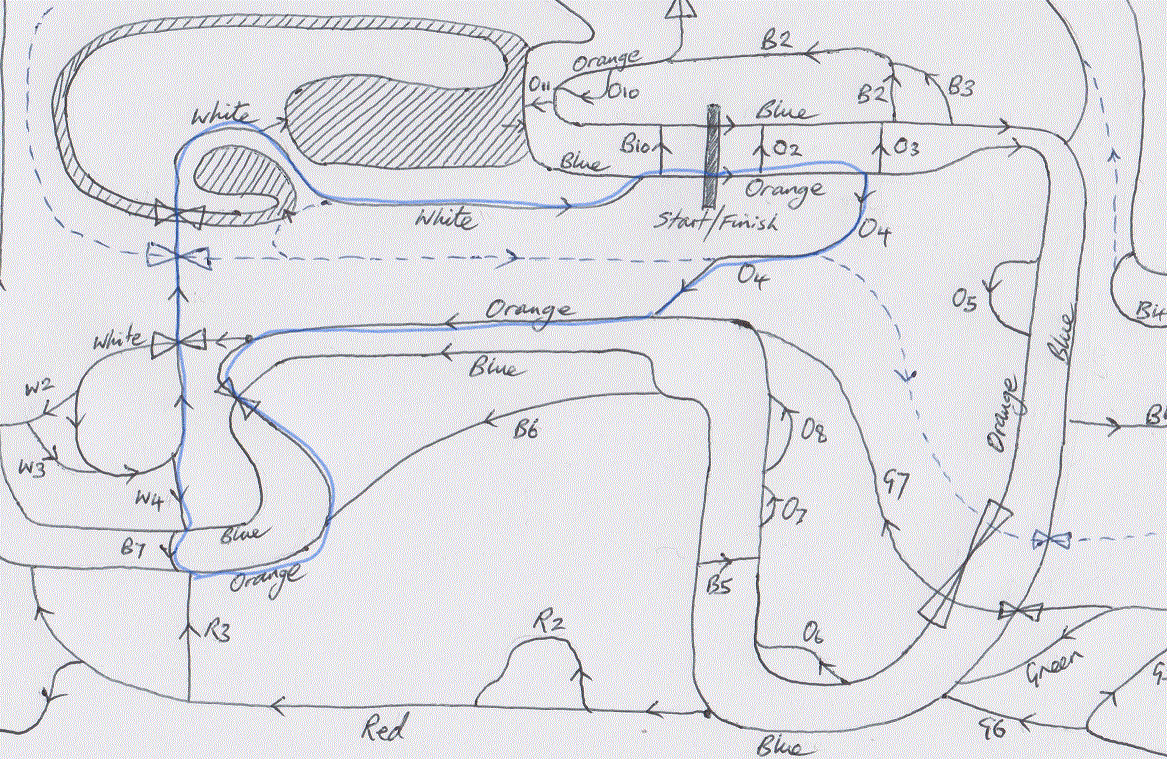 B2
Orange
O11
O10
B2
B3
White
Blue
B10
O2
O3
Blue
Orange
White
Start/Finish
O4
O4
O5
B4
Orange
White
Blue
Blue
W2
Orange
B6
O8
W3
G7
W4
O7
Blue
B7
Orange
B5
R3
R2
O6
Green
Red
G6
Blue